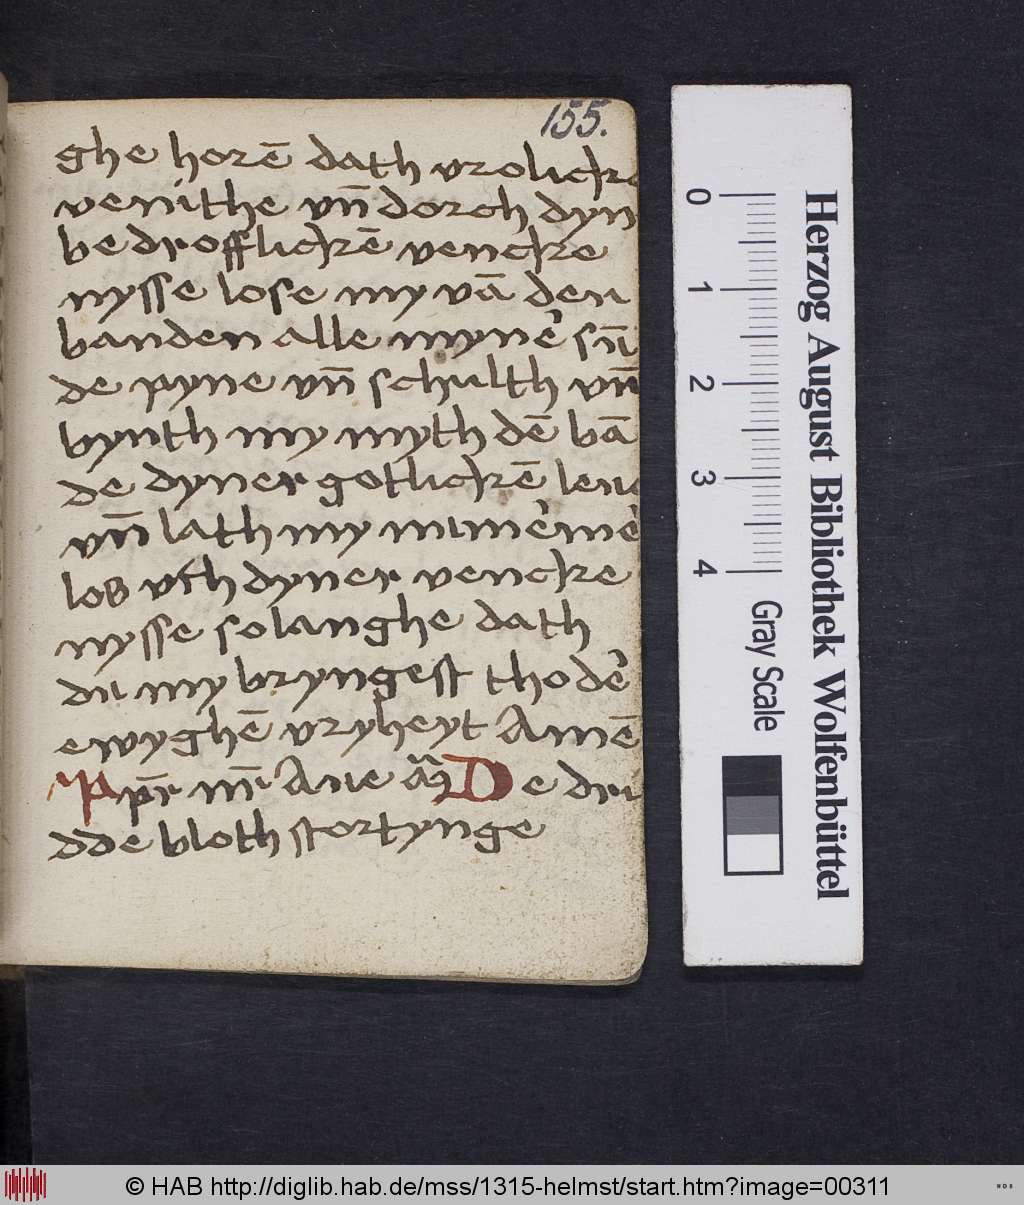 155.
ghe horē dath vrolicke
venithe vn̄ dorch dyn
bedrofflickē vencke
nysse lose my vā den
banden alle mynē sn̄
de pyne vn̄ schulth vn̄
bynth my myth dē bā
de dyner gotlickē leue
vn̄ lath my nūmēmē
los vth dyner vencke
nysse so langhe dath
du my bryngest tho dē
ewyghē vryheyt Amē
pr̄ nr̄ Aue De dru
dde bloth stortynge
0
1
2
3
4
Gray Scale
Herzog August Bibliothek Wolfenbüttel
© HAB http://diglib.hab.de/mss/1315-helmst/start.htm?image=00311